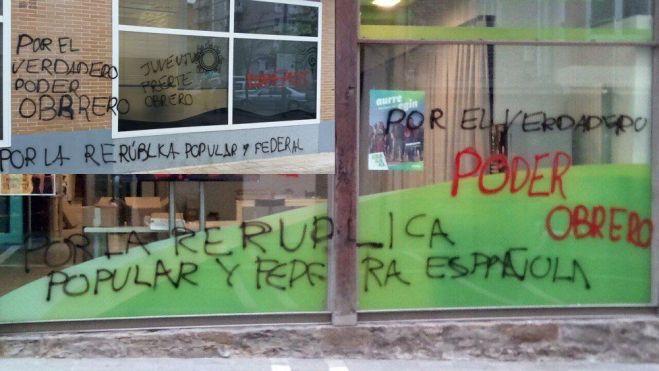 POR EL
VERDADERO
PODER
OBRRERO
JUVENTUD
FRENTE
OBRERO
POR LA RERÚBLKA POPULAR Y FEDERAL
aurre
egin
POR EL VERDADERO
PODER
OBRERO
POR LA RERUPLICA
POPULAR Y FEDERRA ESPAÑOLA